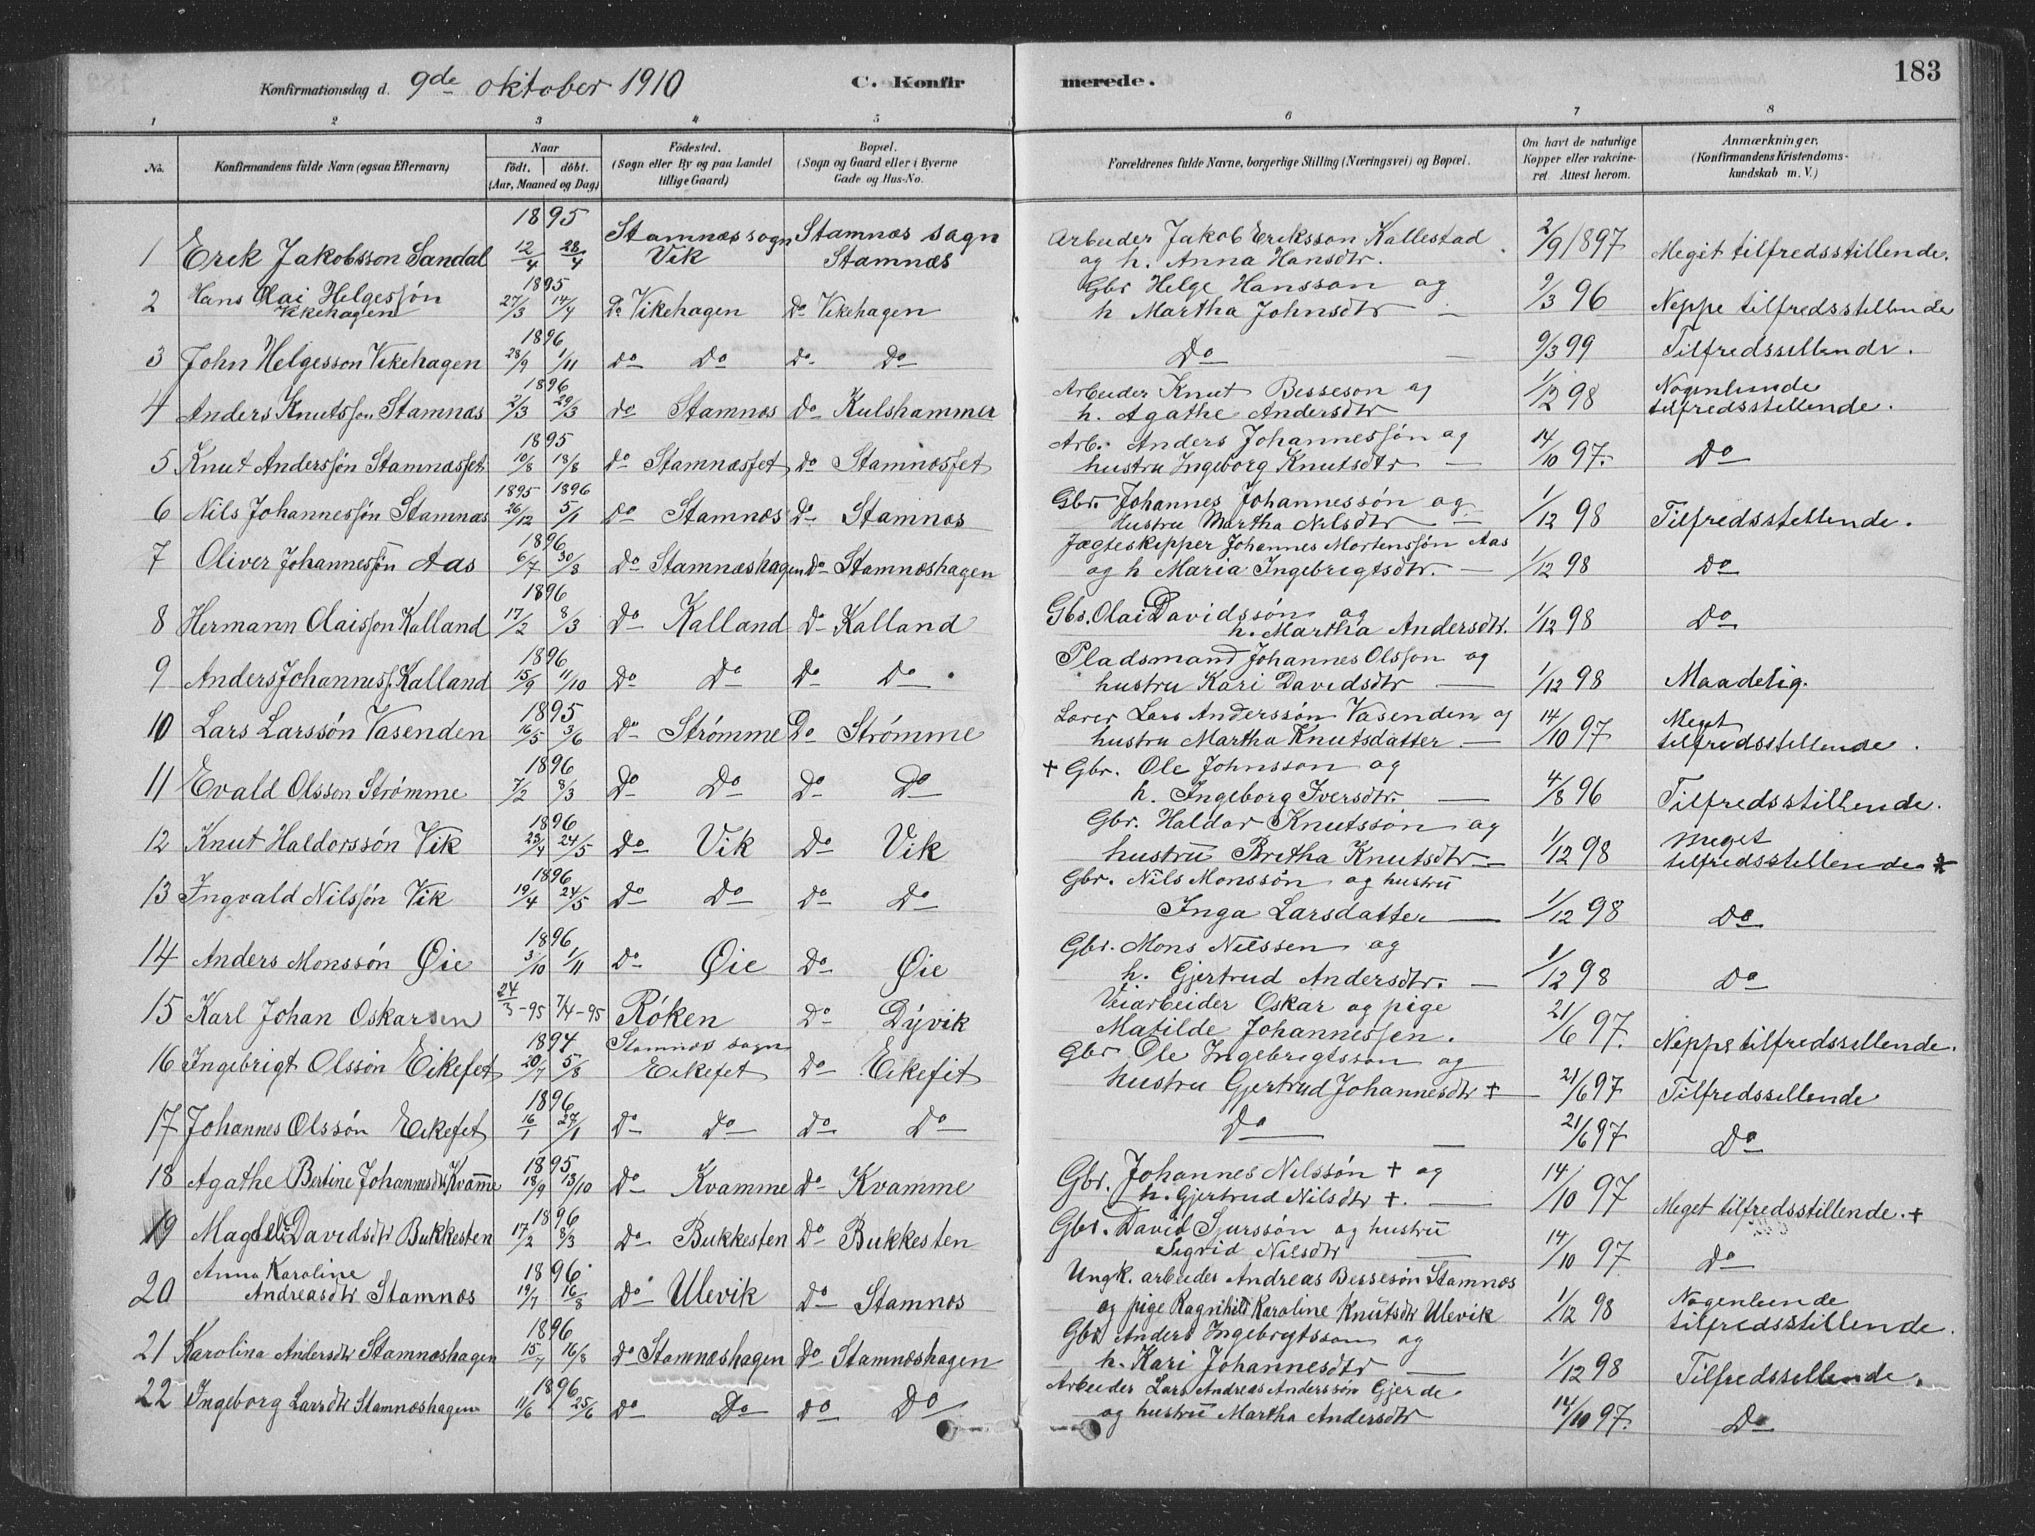 183
Konfirmationsdag d. 9de oktober 1910 C. Konfirmerede.
1 2 3 4 5 6 7 8
No. Konfirmandens fulde Navn (ogsaa Efternavn) Naar født. døbt. (Aar, Maaned og Dag) Fødested. (Sogn eller By og paa Landet tillige Gaard) Bopæl. (Sogn og Gaard eller i Byerne Gade og Hus-No. Forældrenes fulde Navne, borgerlige Stilling (Næringsvei) og Bopæl. Om havt de naturlige Kopper eller vakcineret. Attest herom. Anmærkninger. (Konfirmandens Kristendomskundskab m. V.)
1895
1 Erik Jakobsson Sandal 12/4 28/4 Stamnæs sogn Vik Stamnæs sogn Stamnæs Arbeider Jakob Eriksson Kallestad og h. Anna Hansdtr. 2/9 1897 Meget tilfredsstillende.
1895
2 Hans Olai Helgessøn Vikehagen 27/3 14/4 Do Vikehagen Do Vikehagen Gbr Helge Hansson og h Martha Johnsdtr — 9/3 96 Neppe tilfredsstillende
1896
3 John Helgesson Vikehagen 28/9 1/11 Do Do Do Do Do — 9/3 99 Tilfredsstillende.
1896
4 Anders Knutsson Stamnæs 2/3 29/3 Do Stamnæs Do Kulshammer Arbeider Knut Besseson og h. Agathe Andersdtr 1/12 98 Nogenlunde tilfredsstillende.
1895
5 Knut Anderssøn Stamnæsfet 10/8 18/8 Do Stamnæsfet Do Stamnæsfet Arb. Anders Johannessøn og hustru Ingeborg Knutsdtr — 14/10 97. Do
1895 1896
6 Nils Johannessøn Stamnæs 26/12 5/1 Do Stamnæs Do Stamnæs Gbr. Johannes Johannessøn og hustru Martha Nilsdtr — 1/12 98 Tilfredsstillende.
1896
7 Oliver Johannessøn Aas 6/7 30/8 Do Stamnæshagen Do Stamnæshagen Jægteskipper Johannes Mortenssøn Aas og h Maria Ingebrigtsdtr. — 1/12 98 Do
1896
8 Hermann Olaisson Kalland 17/2 8/3 Do Kalland Do Kalland Gbr. Olai Davidssøn og h. Martha Andersdtr. 1/12 98 Do
1896
9 Anders Johanness. Kalland 15/9 11/10 Do Do Do Do Pladsmand Johannes Olsson og hustru Kari Davidsdtr — 1/12 98 Maadelig.
1895
10 Lars Larssøn Vasenden 16/5 3/6 Do Strømme Do Strømme Lærer Lars Anderssøn Vasenden og hustru Martha Knutsdatter — 14/10 97 Meget tilfredsstillende.
1896
11 Evald Olsson Strømme 7/2 8/3 Do Do Do Do + Gbr. Ole Johnsson og h. Ingeborg Iversdtr. — 4/8 96 Tilfredsstillende.
1896
12 Knut Haldorssøn Vik 23/4 24/5 Do Vik Do Vik Gbr. Haldor Knutssøn og hustru Britha Knutsdtr — 1/12 98 Meget tilfredsstillende
1896
13 Ingvald Nilssøn Vik 19/4 24/5 Do Do Do Do Gbr. Nils Monssøn og hustru Inga Larsdatter — 1/12 98 Do
1896
14 Anders Monssøn Øie 3/10 1/11 Do Øie Do Øie Gbr. Mons Nilssen og h. Gjertrud Andersdtr. — 1/12 98 Do
15 Karl Johan Oskarsen 24/3-95 7/4-95 Røken Do Dyvik Veiarbeider Oskar og pige Matilde Johannessen. 21/6 97. Neppe tilfredsstillende.
1894
16 Ingebrigt Olssøn Eikefet 20/7 5/8 Stamnæs sogn Eikefet Do Eikefet Gbr Ole Ingebrigtsson og hustru Gjertrud Johannesdtr + — 21/6 97 Tilfredsstillende
1896
17 Johannes Olssøn Eikefet 16/1 27/1 Do Do Do Do Do — 21/6 97 Do
1895
18 Agathe Bertine Johannesdtr Kvamme 18/9 13/10 Do Kvamme Do Kvamme Gbr. Johannes Nilssøn + og h. Gjertrud Nilsdtr +. — 14/10 97 Meget tilfredsstillende. +
1896
19 Magdeli Davidsdtr Bukkesten 17/2 8/3 Do Bukkesten Do Bukkesten Gbr. David Sjurssøn og hustru Sigrid Nilsdtr — 14/10 97. Do
1896
20 Anna Karoline Andreasdtr Stamnæs 19/7 16/8 Do Ulevik Do Stamnæs Ungk. arbeider Andreas Bessesøn Stamnæs og pige Ragnhild Karoline Knutsdtr Ulevik 1/12 98 Nogenlunde tilfredsstillende.
1896
21 Karolina Andersdtr Stamnæshagen 15/7 16/8 Do Stamnæshagen Do Stamnæshagen Gbr Anders Ingebrigtsson og h. Kari Johannesdtr — 1/12 98 Tilfredsstillende.
1896
22 Ingeborg Larsdtr Stamnæshagen 11/6 25/6 Do Do Do Do Arbeider Lars Andreas Anderssøn Gjerde og hustru Martha Andersdtr 14/10 97. Do